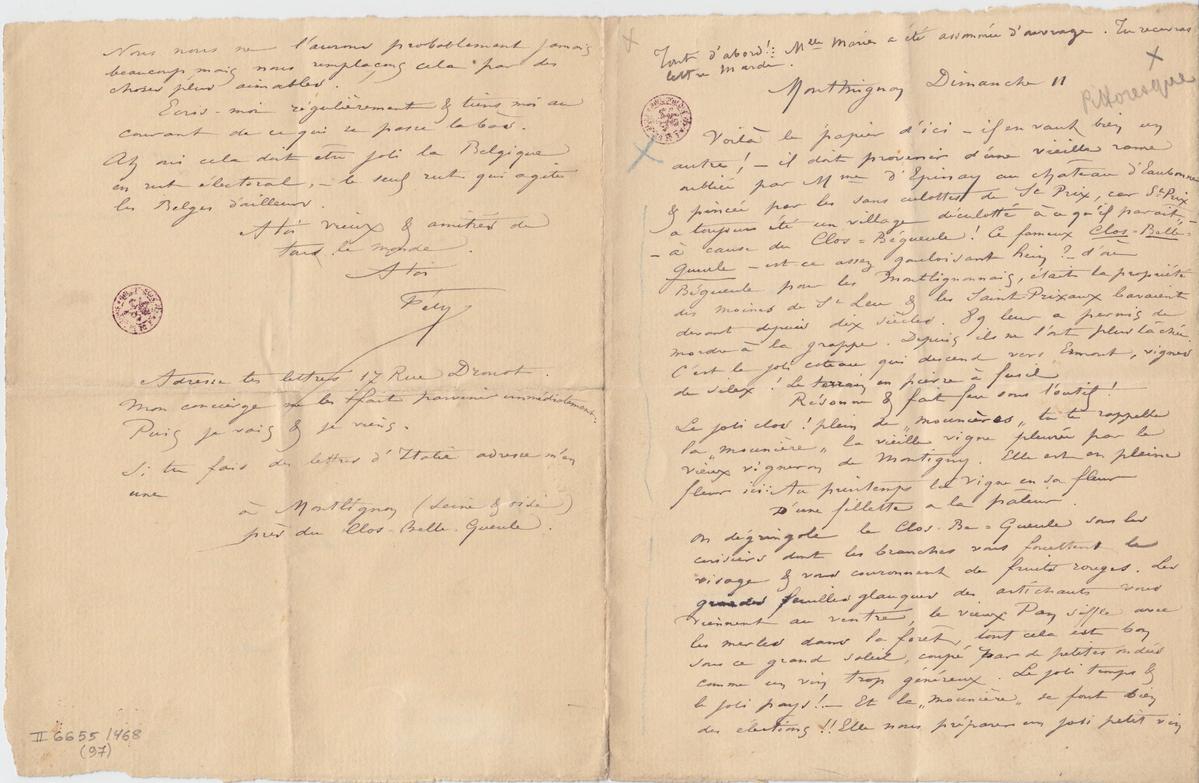 Tout d'abord!: Mlle Marie a été assommée d'ouvrage. Tu recevras
lettre Mardi.
Montlignon Dimanche 11
Pittoresque
Voilà le papier d'ici – il en vaut bien un
autre! – il doit provenir d'une vieille rame
oubliée par Mme d'Epinay au château d'Eaubonne
& pincée par les sans culottes de St Prix, car St Prix
a toujours été un village déculotté à ce qu'il parait,
– à cause du Clos-Bégueule! Ce fameux Clos-Belle-
Gueule – est ce assez gauloisant hein? – d'où
Bégueule pour les Montlignonnais, était la propriété
des moines de St Leu & les Saint-Prixaux bavaient
devant depuis dix siècles. 89 leur a permis de
mordre à la grappe. Depuis ils ne l'ont plus lâchée.
C'est le joli coteau qui descend vers Ermont, vignes
de silex! Le terrain en pierre à fusil
Résonne & fait feu sous l'outil!
Le joli clos! plein de „mounières„ tu te rappelle
la „mounière„ la vieille vigne pleurée par le
vieux vigneron de Montigny. Elle est en pleine
fleur ici: Au printemps la vigne en sa fleur
D'une fillette a la paleur.
On dégringole le Clos-Be-Gueule sous les
cerisiers dont les branches vous fouettent le
visage & vous couronnent de fruits rouges. Les
grandes feuilles glauques des artichauts vous
viennent au ventre, le vieux Pan siffle avec
les merles dans la forêt, tout cela est bon
sous ce grand soleil, coupé par de petites ondées
comme un vin trop généreux. Le joli temps &
le joli pays! – Et la „mounière„ se fout bien
des élections!! Elle nous prépare un joli petit vin
Nous nous ne l'aurons probablement jamais
beaucoup, mais nous remplaçons cela par des
choses plus aimables.
Ecris-moi régulièrement & tiens moi au
courant de ce qui se passe là bas.
Ah oui cela doit être joli la Belgique
en rut électoral, – le seul rut qui agite
les Belges d'ailleurs.
A toi vieux & amitiés de
tout le monde.
A toi
Fély
Adresse tes lettres 17 Rue Drouot.
Mon concierge me les fait parvenir immédiatement.
Puis je vais & je viens.
Si tu fais des lettres d'Italie adresse m'en
une
à Montlignon (Seine & Oise)
près du Clos-Belle-Gueule.
II 6655/468
(97)